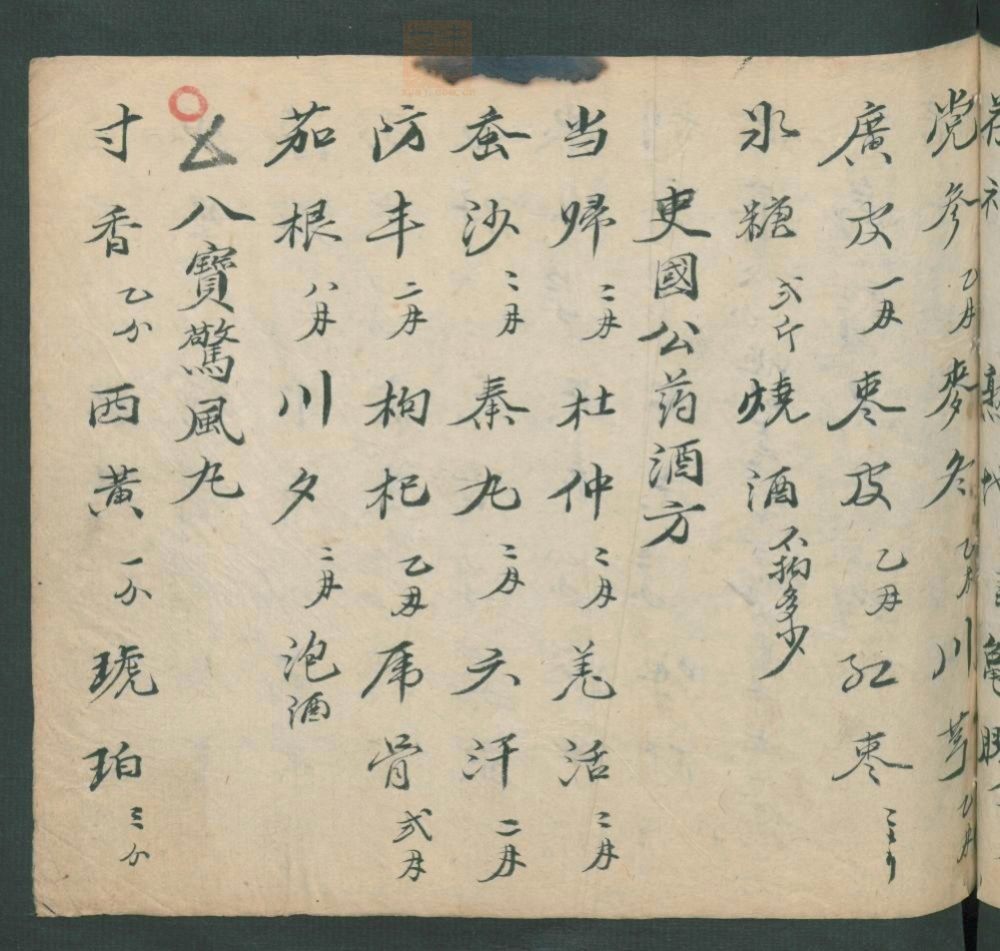 党參 乙两 麥冬 乙两 川芎 乙两
廣皮 一两 枣皮 乙两 红枣
氷糖 弍斤 燒酒 不拘多少
史國公药酒方
当歸 二两 杜仲 二两 羌活 二两
蚕沙 二两 秦艽 二两 六汗 二两
防丰 二两 枸杞 乙两 虎骨 弍两
茄根 八两 川夕 二两 泡酒
八寶驚風丸
寸香 乙分 西黄 一分 琥珀 三分